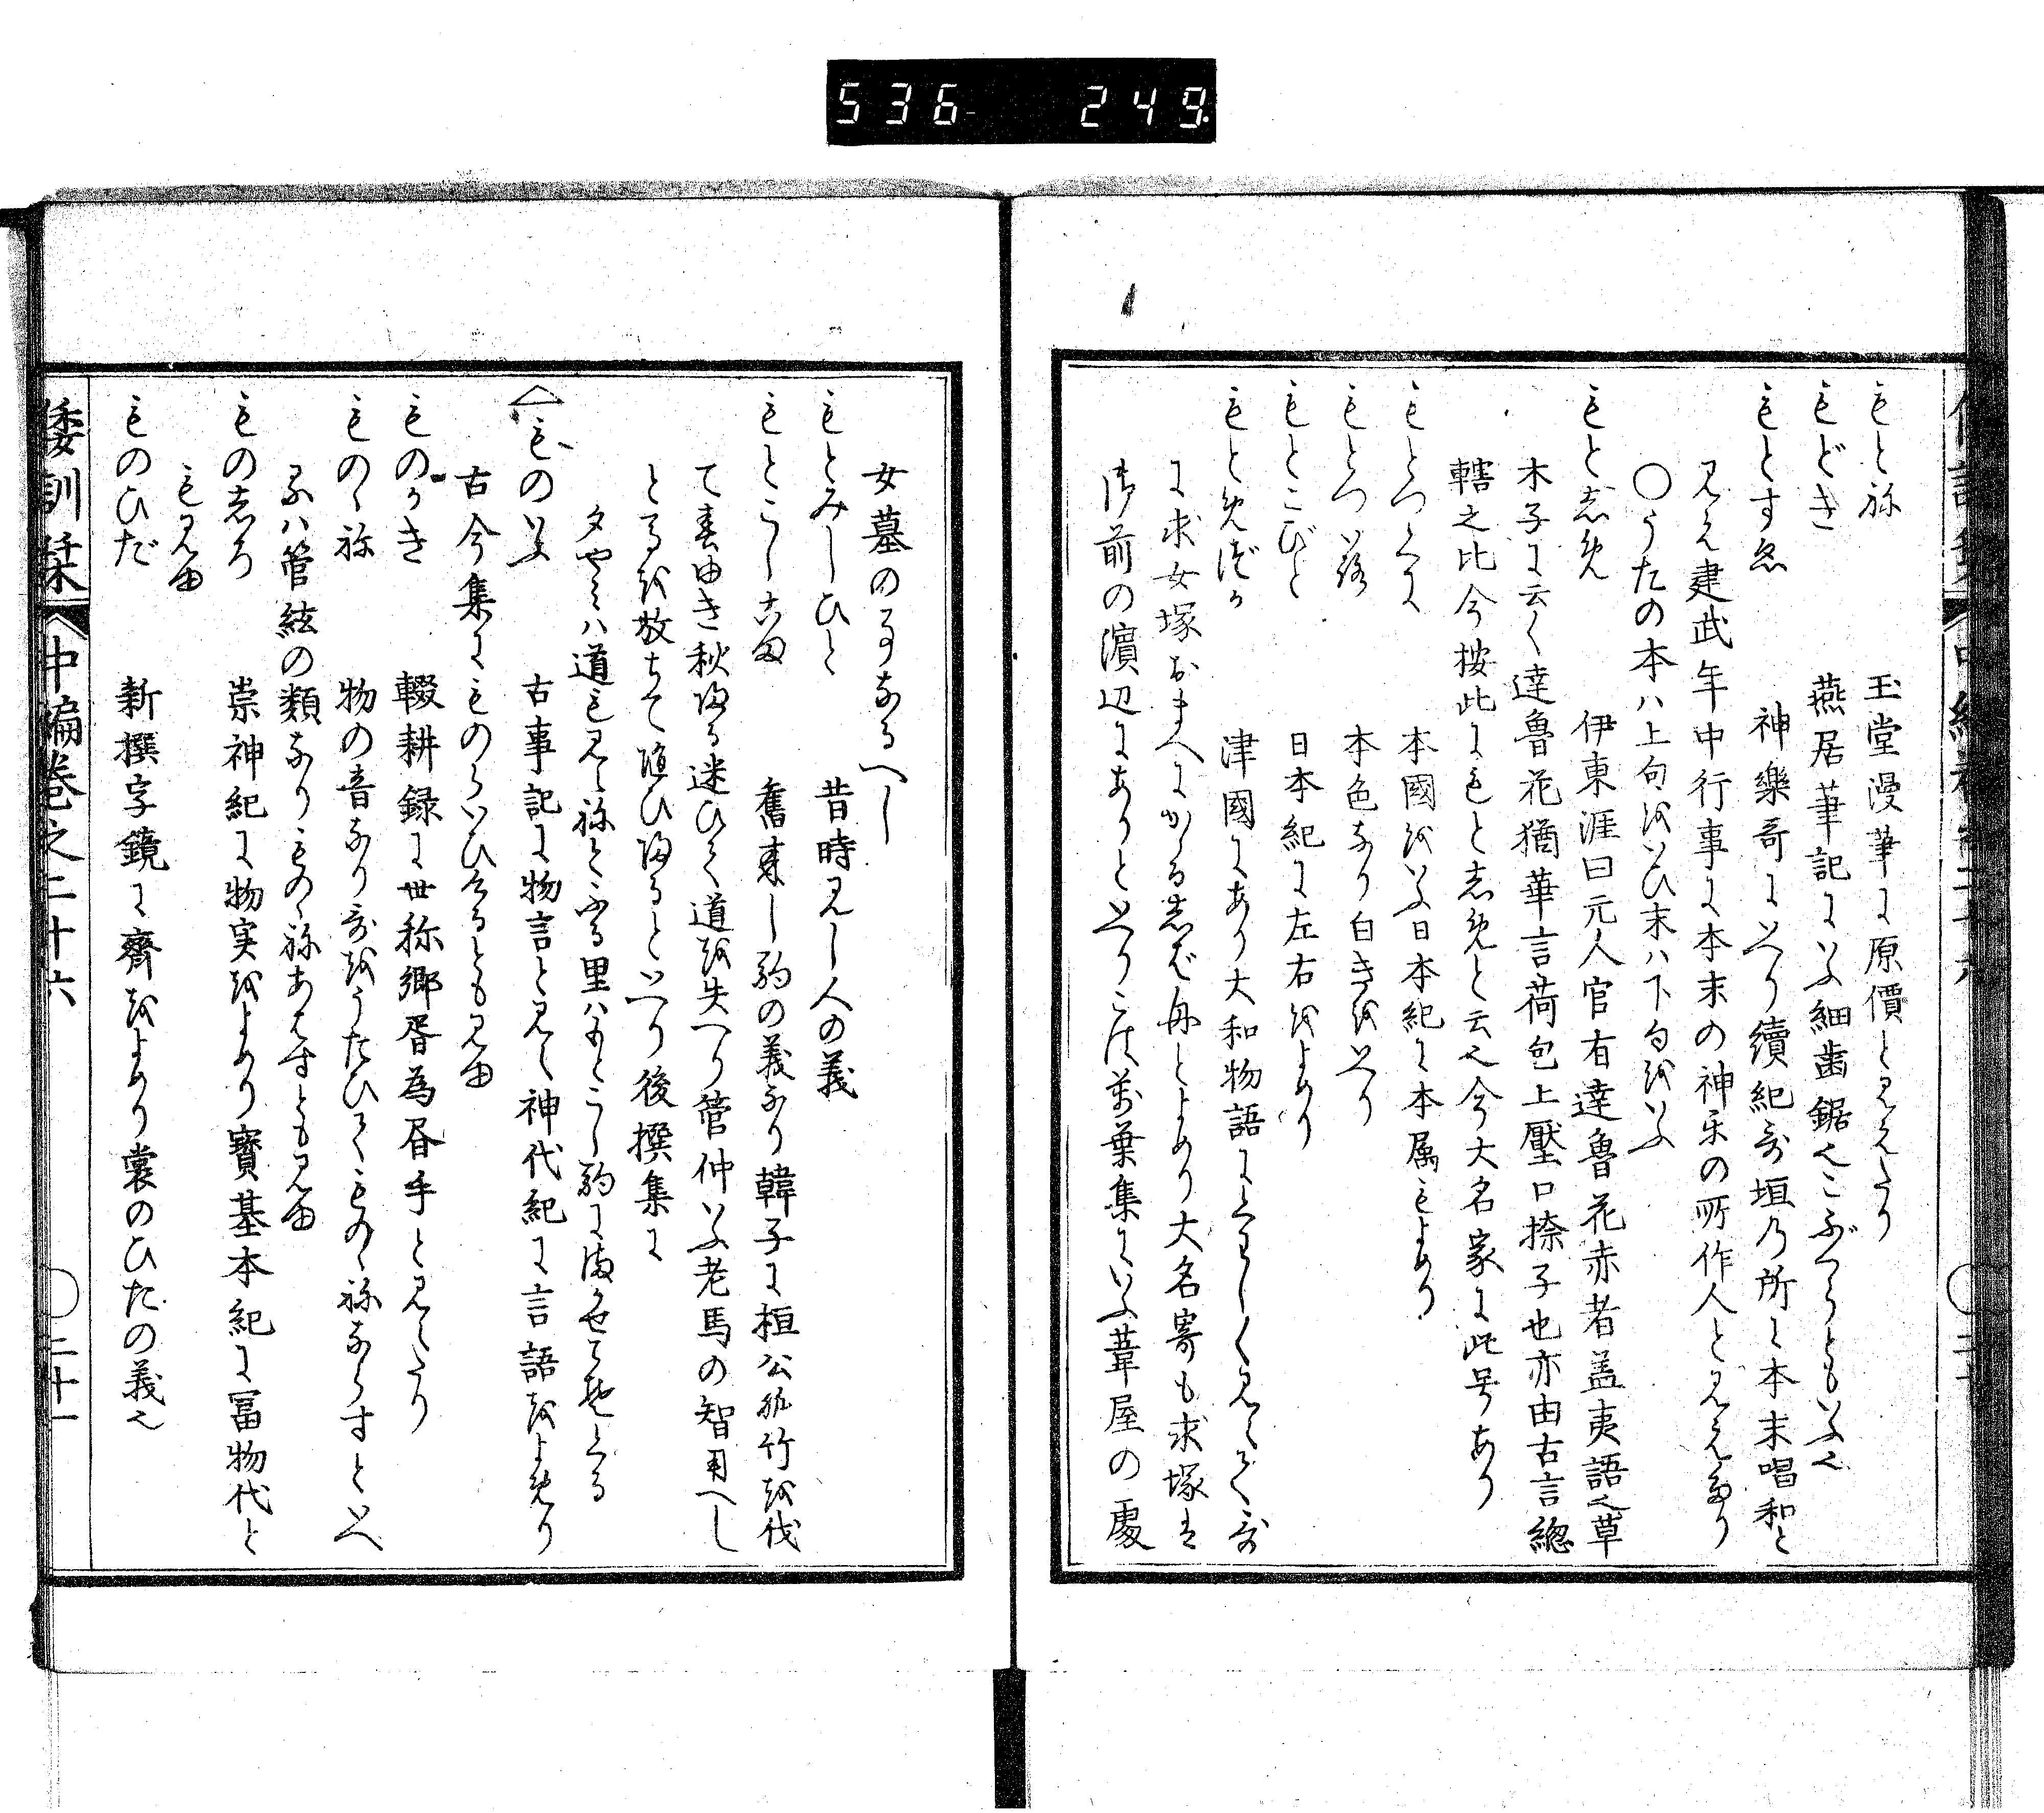 536- 249.
もと祢 玉堂漫筆に原價と見えたり
もどき 燕居筆記にいふ細歯鋸也こぶくらともいふ也
もとすゑ 神樂哥にいへり續紀哥垣乃所に本末唱和と
見え建武年中行事に本末の神楽の所作人と見えたり
○うたの本ハ上句をいひ末ハ下句をいふ
もと志め 伊東涯曰元人官有達魯花赤者盖夷語也草
木子に云く達魯花猶華言荷包上壓口捺子也亦由古言總
轄之比今按此にもと志めと云也今大名家に此号あり
もとつくに 本國をいふ日本紀に本属もよめり
もとつ以ろ 本色なり白きをいへり
もとこびと 日本紀に左右をよめり
もとめづか 津國にあり大和物語にくわしく見えて哥
に求女塚おまへにかゝる志ば舟とよめり大名寄も求塚は
御前の濱辺にありといへりこは萬葉集にいふ葦屋の處
女墓の事なるへし
もとみしひと 昔時見し人の義
もとこし古ま 舊来し駒の義なり韓子に桓公孤竹を伐
て春ゆき秋歸る迷ひて道を失へり管仲いふ老馬の智用へし
とる越放ちて随ひ歸るといへり後撰集に
夕やミハ道も見え祢とふる里ハもとこし駒にまかせてそくる
もものいふ 古事記に物言と見え神代紀に言語をよめり
古今集にものらいひけるとも見ゆ
ものかき 輟耕録に世称郷胥為昏手と見えたり
ものゝ祢 物の音なり哥をうたひてものゝ祢ならすといへ
るハ管絃の類なりものゝ祢あはすとも見ゆ
もの志ろ 崇神紀に物実をよめり寶基本紀に冨物代と
も見ゆ
ものひだ 新撰字鏡に齋をよめり裳のひたの義也
倭訓栞 中編巻之二十六 ○二十一